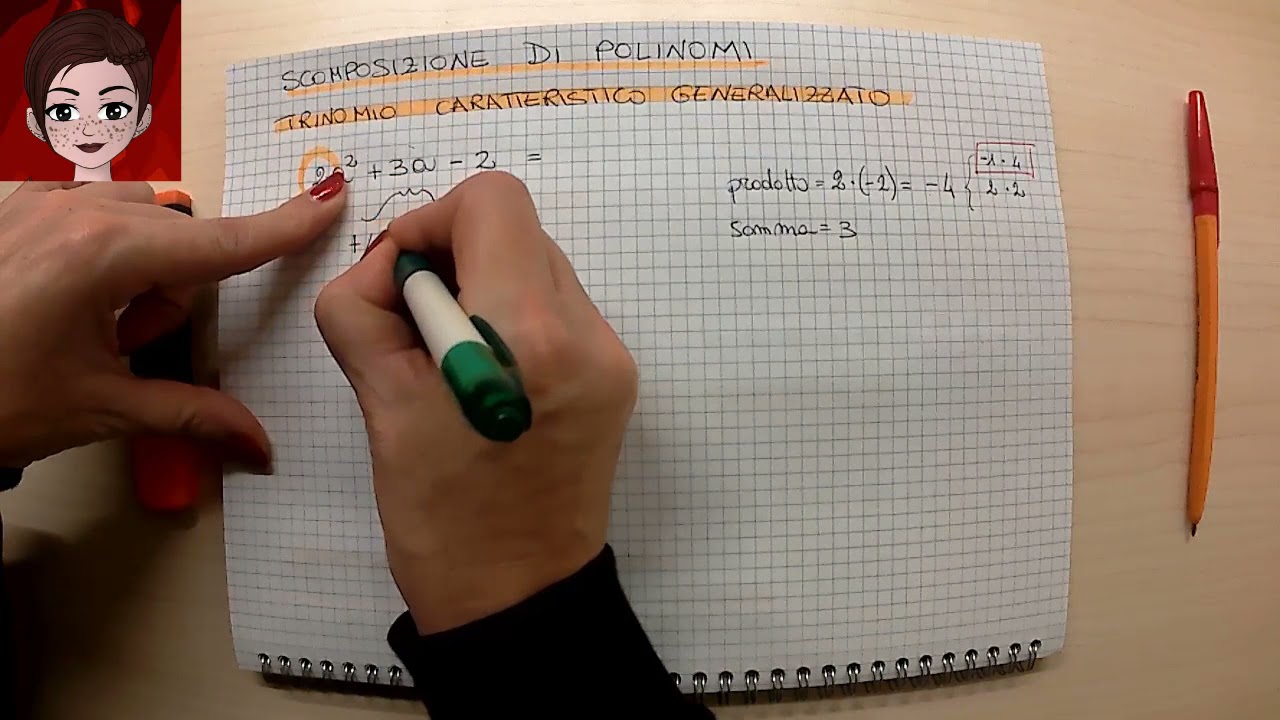 SCOMPOSIZIONE DI POLINOMI
TRINOMIO CARATTERISTICO GENERALIZZATO
2a² + 3a - 2 =
prodotto = 2·(-2) = -4 { -1·4
2·2
somma = 3
+